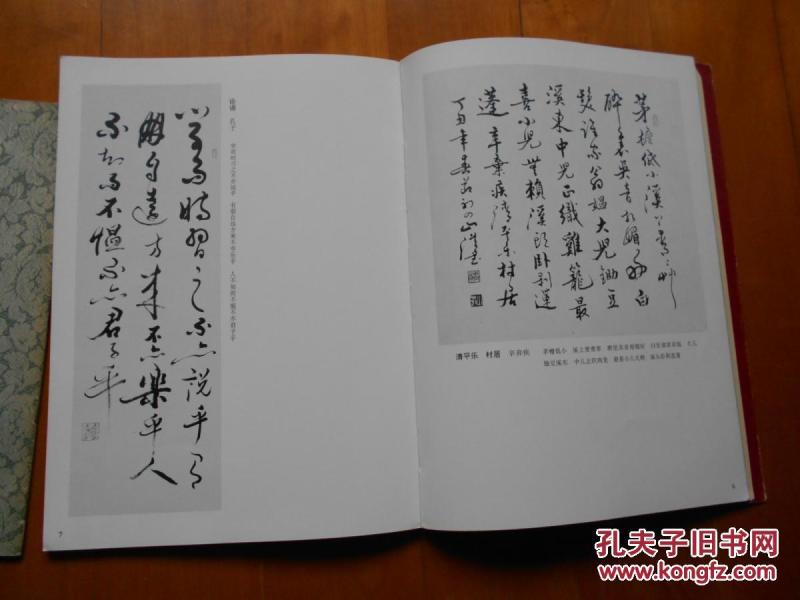 茅檐低小溪上青青艸
醉裏吴音相媚好白
髮誰家翁媪大兒鋤豆
溪東中兒正織雞籠最
喜小兒無賴溪頭卧剥蓮
蓬 辛棄疾清平樂村居
丁丑年春
清平乐 村居 辛弃疾 茅檐低小 溪上青青草 醉里吴音相媚好 白发谁家翁媪 大儿
锄豆溪东 中儿正织鸡笼 最喜小儿无赖 溪头卧剥莲蓬
6
论语 孔子 学而时习之不亦说乎 有朋自远方来不亦乐乎 人不知而不愠不亦君子乎
学而時習之不亦説乎有
朋自遠方来不亦樂乎人
不知而不愠不亦君子乎
7
孔夫子旧书网
www.kongfz.com